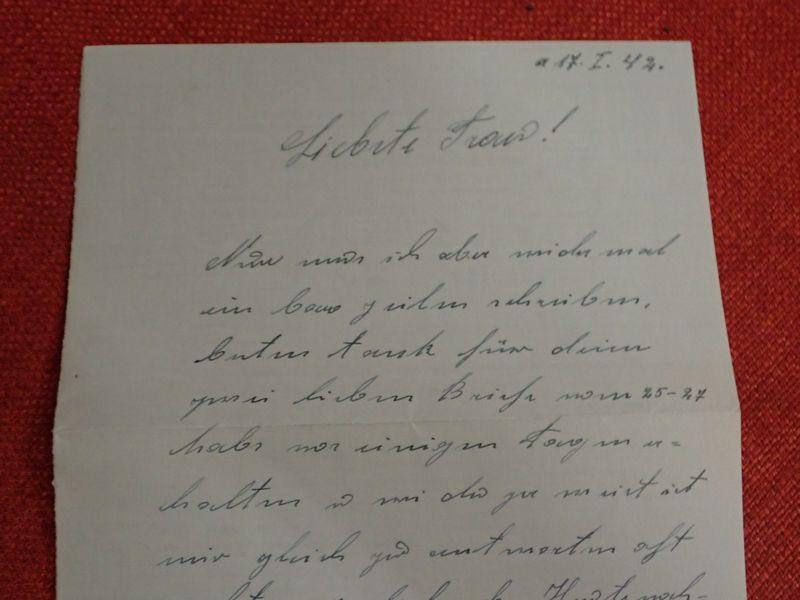 a 17. I. 42.
Liebste Frau!
Nun mus ich aber wieder mal
ein baar zeilen schreiben,
besten tank für deine
zwei lieben Briefe vom 25-27
habe vor einigen Tagen er=
halten u wi du ja weist ist
mir gleich zu antworten oft